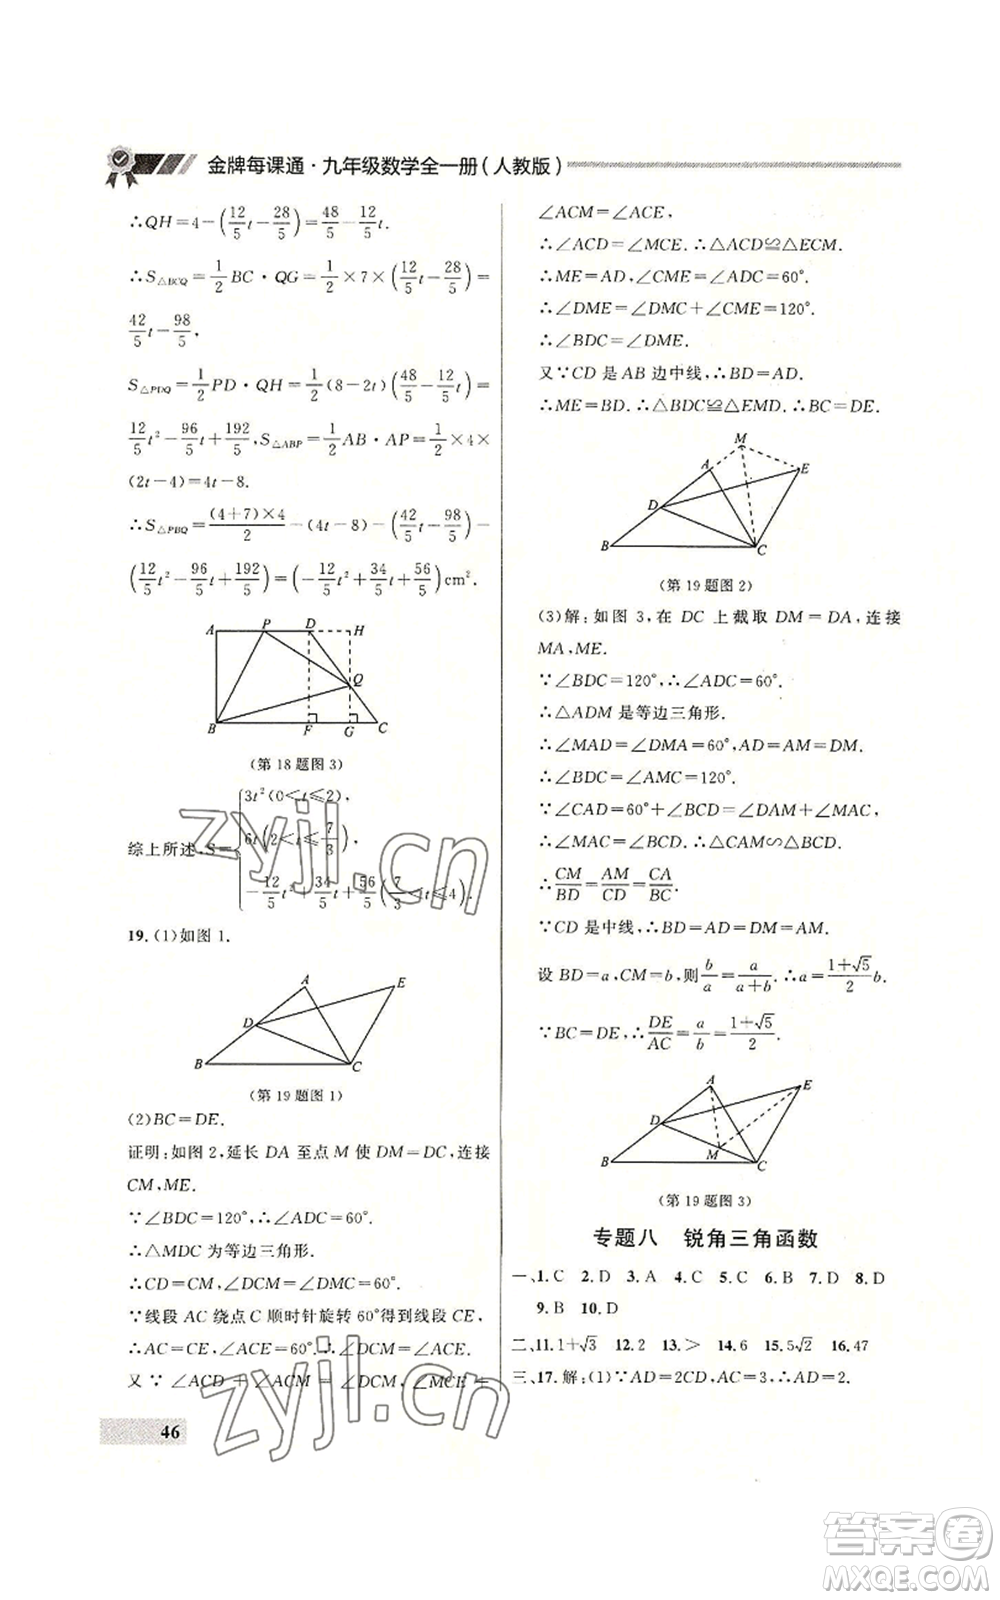 金牌每课通·九年级数学全一册(人教版)
∴QH=4-(12/5 t-28/5)=48/5-12/5 t.
∴S△BCQ=1/2 BC·QG=1/2×7×(12/5 t-28/5)=
42/5 t-98/5,
S△PDQ=1/2 PD·QH=1/2(8-2t)(48/5-12/5 t)=
12/5 t²-96/5 t+192/5,S△ABP=1/2 AB·AP=1/2×4×
(2t-4)=4t-8.
∴S△PBQ=(4+7)×4/2-(4t-8)-(42/5 t-98/5)-
(12/5 t²-96/5 t+192/5)=(-12/5 t²+34/5 t+56/5)cm².
A P D H
Q
B F G C
(第18题图3)
综上所述,S={3t²(0<t≤2),
6t(2<t≤7/3),
-12/5 t²+34/5 t+56/5(7/3<t≤4).
19.(1)如图1.
A E
D
B C
(第19题图1)
(2)BC=DE.
证明:如图2,延长DA至点M使DM=DC,连接
CM,ME.
∵∠BDC=120°,∴∠ADC=60°.
∴△MDC为等边三角形.
∴CD=CM,∠DMC=∠MDC=60°.
∵线段AC绕点C顺时针旋转60°得到线段CE,
∴AC=CE,∠ACE=60°.∴∠DCM=
又∵∠ACD+∠ACM=∠ACM+∠MCE=
46
∠ACM=∠ACE,
∴∠ACD=∠MCE.∴△ACD≌△ECM.
∴ME=AD,∠CME=∠ADC=60°.
∴∠DME=∠DMC+∠CME=120°.
∴∠BDC=∠DME.
又∵CD是AB边中线,∴BD=AD.
∴ME=BD.∴△BDC≌△EMD.∴BC=DE.
M
A E
D
B C
(第19题图2)
(3)解:如图3,在DC上截取DM=DA,连接
MA,ME.
∵∠BDC=120°,∴∠ADC=60°.
∴△ADM是等边三角形.
∴∠MAD=∠DMA=60°,AD=AM=DM.
∴∠BDC=∠AMC=120°.
∵∠CAD=60°+∠BCD=∠DAM+∠MAC,
∴∠MAC=∠BCD.∴△CAM∽△BCD.
∴CM/BD=AM/CD=CA/BC.
∵CD是中线,∴BD=AD=DM=AM.
设BD=a,CM=b,则b/a=a/(a+b).∴a=(1+√5)/2 b.
∵BC=DE,∴DE/AC=a/b=(1+√5)/2.
A E
D
M
B C
(第19题图3)
专题八 锐角三角函数
一、1.C 2.D 3.A 4.C 5.C 6.B 7.D 8.D
9.B 10.D
二、11.1+√3 12.2 13.> 14.6 15.5√2 16.47
三、17.解:(1)∵AD=2CD,AC=3,∴AD=2.
zyjl.cn
zyjl.cn
答案圈
MXQE.COM